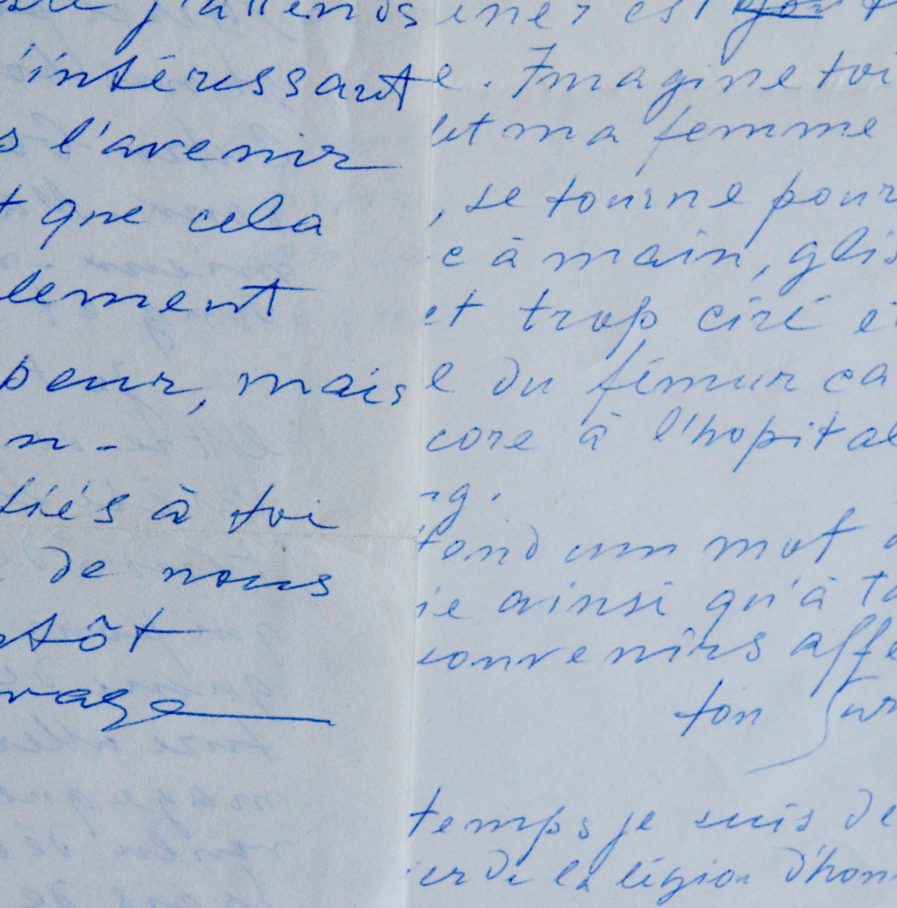 j'attends
l'intéressant
s l'avenir
t que cela
lement
peur, mais
n-
tiés à toi
de nous
ntôt
rage
est
e. Imagine toi
et ma femme
, se tourne pour
c à main, glis
et trop ciré et
e du fémur ca
core à l'hopital
rg.
fond um mot
ie ainsi qu'à ta
souvenirs affe
ton
temps je suis de
ier de la légion d'hon